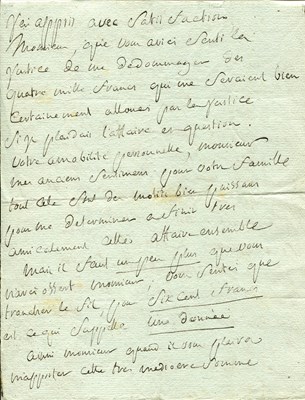 J'ai appris avec satisfaction
Monsieur, que vous aviez senti la
justice de me dedommager des
quatre mille francs qui me seraient bien
certainement alloués par la justice
si je plaidais l'affaire en question.
votre amabilité personnelle, monsieur
mes anciens sentimens pour votre famille
tout cela sont des motifs bien puissans
pour me determiner a finir tres
amicalement cette affaire ensemble
Mais il faut un peu plus que vous
n'avez offert monsieur, vous sentez que
trancher le fil, pour six cent francs
est ce qui s'appelle une donnée
ainsi monsieur quand il vous plaira
m'apporter cette tres mediocre somme